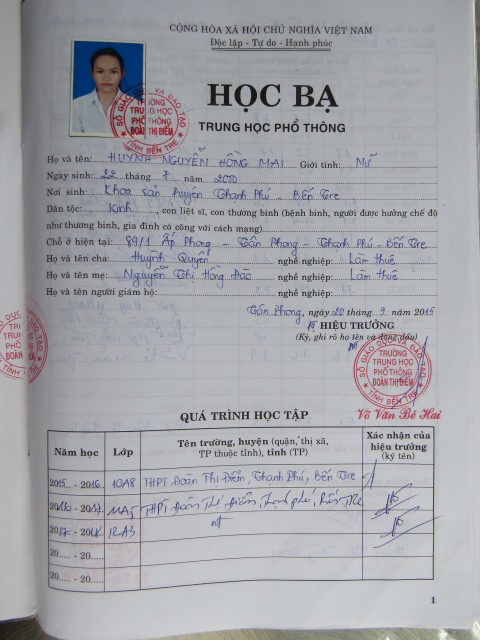 CỘNG HÒA XÃ HỘI CHỦ NGHĨA VIỆT NAM
Độc lập - Tự do - Hạnh phúc
HỌC BẠ
TRUNG HỌC PHỔ THÔNG
SỞ GIÁO DỤC VÀ ĐÀO TẠO
TRƯỜNG
TRUNG HỌC
PHỔ THÔNG
ĐOÀN THỊ ĐIỂM
TỈNH BẾN TRE
Họ và tên: HUỲNH NGUYỄN HỒNG MAI Giới tính: Nữ
Ngày sinh: 22 tháng 7 năm 2000
Nơi sinh: Khoa sản huyện Thạnh Phú - Bến Tre
Dân tộc: Kinh, con liệt sĩ, con thương binh (bệnh binh, người được hưởng chế độ
như thương binh, gia đình có công với cách mạng)
Chỗ ở hiện tại: 89/1 Ấp Phong - Tân Phong - Thạnh Phú - Bến Tre
Họ và tên cha: Huỳnh Quyển nghề nghiệp: Làm thuê
Họ và tên mẹ: Nguyễn Thị Hồng Đào nghề nghiệp: Làm thuê
Họ và tên người giám hộ: nghề nghiệp:
Tân Phong, ngày 20 tháng 9 năm 2015
HIỆU TRƯỞNG
(Ký, ghi rõ họ tên và đóng dấu)
SỞ GIÁO DỤC VÀ ĐÀO TẠO
TRƯỜNG
TRUNG HỌC
PHỔ THÔNG
ĐOÀN THỊ ĐIỂM
TỈNH BẾN TRE
Võ Văn Bé Hai
QUÁ TRÌNH HỌC TẬP
Năm học Lớp Tên trường, huyện (quận, thị xã, TP thuộc tỉnh), tỉnh (TP) Xác nhận của hiệu trưởng (ký tên)
2015 - 2016 10A8 THPT Đoàn Thị Điểm, Thạnh Phú, Bến Tre
2016 - 2017 11A5 THPT Đoàn Thị Điểm, Thạnh Phú, Bến Tre
2017 - 2018 12A3
20..... - 20.....
20..... - 20.....
1